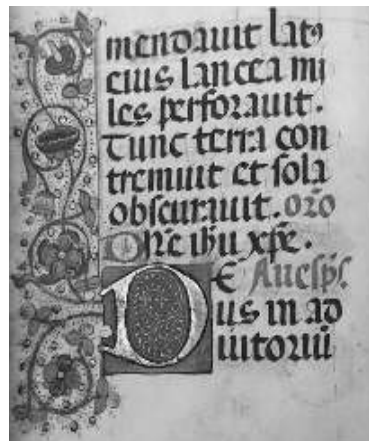 mendauit lat9
eius lancea mi
les perforauit.
Tunc terra con
tremuit et sola
obscurauit. oro
One ihu xpe.
E Auesps.
Dus in ad
iutoriu